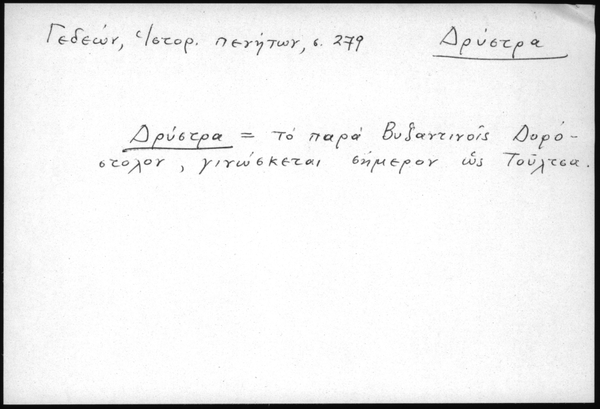 Γεδεών, Ἱστορ. πενήτων, σ. 279 Δρύστρα
Δρύστρα = τὸ παρὰ Βυζαντινοῖς Δορό-
στολον, γινώσκεται σήμερον ὡς Τοῦλτσα.